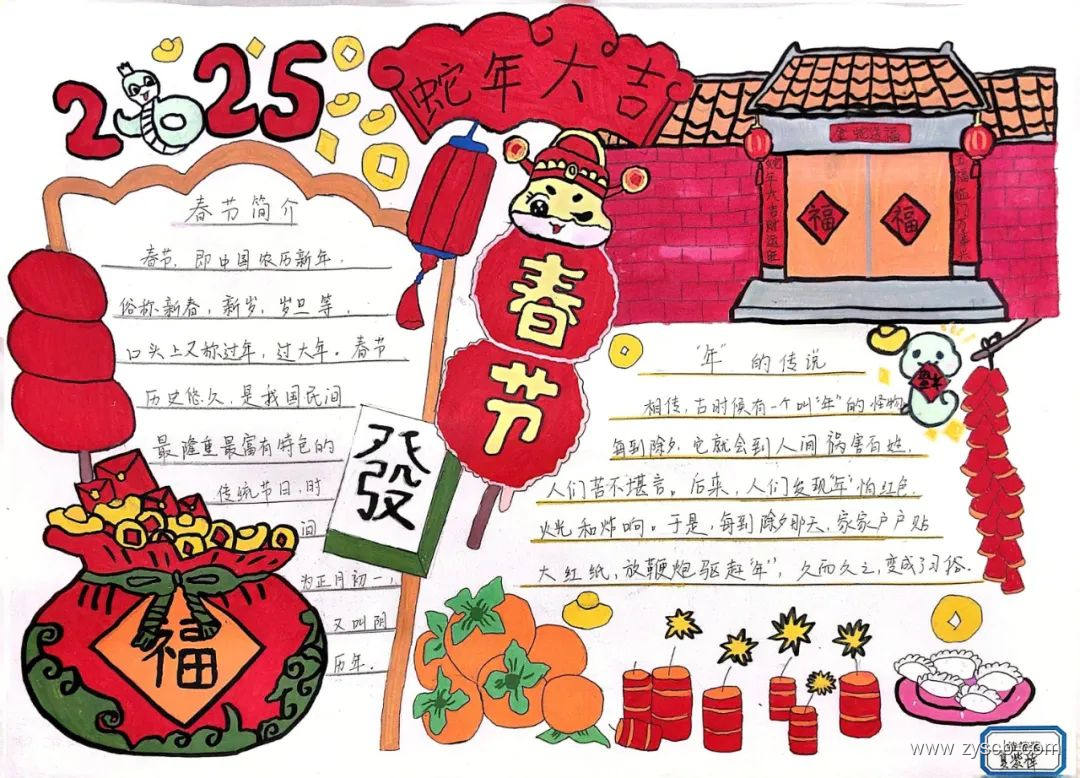 2025
蛇年大吉
金蛇送福
蛇年大吉财运旺
五福临门万事兴
福
福
春节
發
福
春节简介
春节，即中国农历新年，
俗称新春，新岁，岁旦等，
口头上又称过年，过大年。春节
历史悠久，是我国民间
最隆重最富有特色的
传统节日，时
间
为正月初一，
又叫阴
历年.
"年"的传说
相传，古时候有一个叫"年"的怪物，
每到除夕，它就会到人间祸害百姓，
人们苦不堪言。后来，人们发现"年"怕红色，
火光和炸响。于是，每到除夕那天，家家户户贴
大红纸，放鞭炮驱赶"年"，久而久之，变成了习俗.